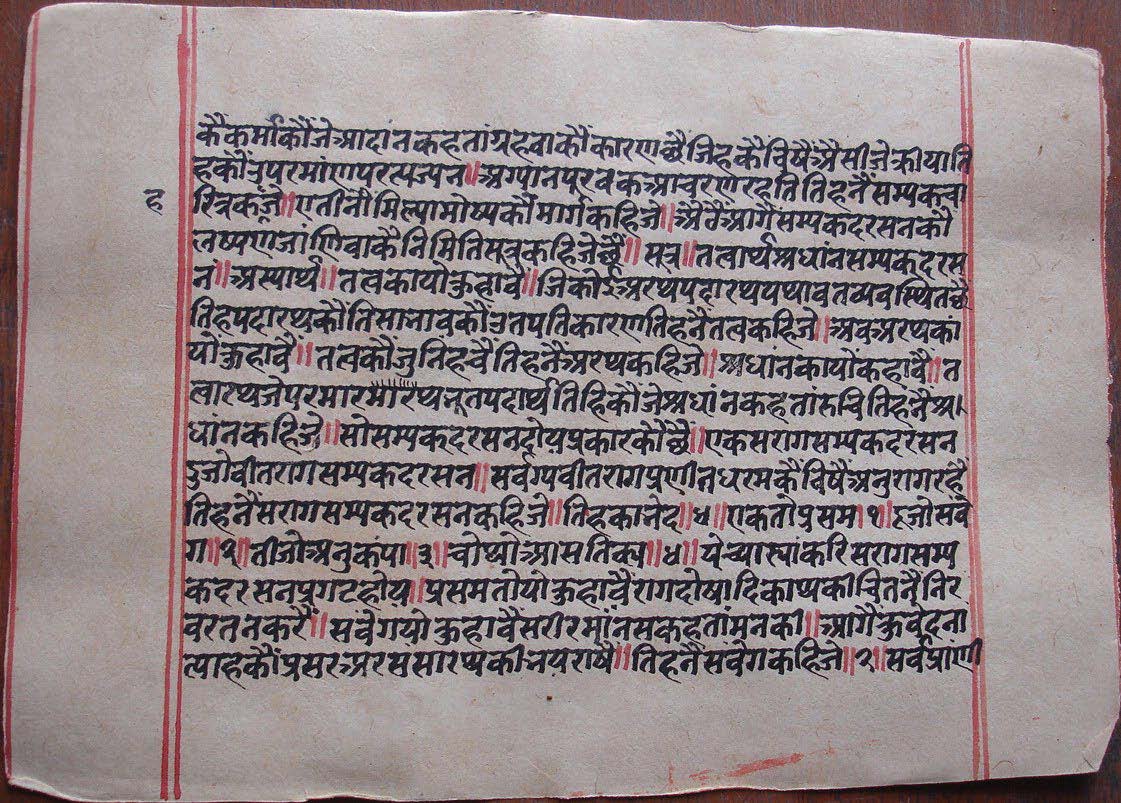 कैकर्माकौंजेआदांनकहतांग्रहवाकौंकारणछैजिहकैविषैंअैसीजेक्रीयाति
हकौंजुपरमांणपरत्यज्यन॥अग्यानपूरवकआचरणरहतितिहनैंसम्यकचा
ह
रित्रकंजे॥एतीनौंमिल्यामोष्यकौंमार्गकहिजे॥अैठैंआगैंसम्यकदरसनकौं
लष्यणजांणिवाकैनिमितिसूत्रकहिजेछैं॥सूत्र॥तत्वार्थश्रधांनसम्यकदरस
नं॥अस्यार्थ॥तत्वकायोकुहावै॥जिकोईअरथपदारथयथावतव्यवस्थितछै
तिहपदारथकौंतिसाभावकौंउतपतिकारणतिहनैंतत्वकहिजे॥अबअरथकां
योंकुहावैं॥तत्वकौंजुनिहचैंतिहनैंअरथकहिजे॥श्रधांनकायोंकहावै॥त
त्वारथजेपरमारमारथभूतपदार्थतिहिकौंजेश्रधांनकहतांरुचितिहनैंश्र
धांनकहिजे॥सोसम्यकदरसनदोयप्रकारकौंछैं॥एकसरागसम्यकदरसन
दुजोवीतरागसम्यकदरसन॥सर्वग्यवीतरागप्रणीतधरमकैंविषैंअनुरागरहै
तिहनैंसरागसम्यकदरसनकहिजे॥तिहकाभेद॥४॥एकतोप्रसम॥१॥दूजोसंवे
ग॥२॥तीजोअनुकंपा॥३॥चोथोआसतिक्य॥४॥येच्यास्यांकरिसरागसम्य
कदरसनप्रगटहोय॥प्रसमतोयोकुहावैरागदोषादिकाथकीचितनैंनिर
वरतनकरैं॥संवेगयोकुहावैंसरीरमांनसकहतांमनकी॥आगैंकुवेदना
त्याहकौंप्रसरअरसंसारथकीभयराषै॥तिहनैंसंवेगकहिजे॥२॥सर्वप्रांणी